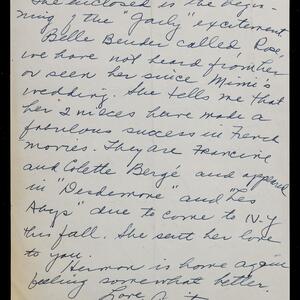 The enclosed is the begin-
ning of the "Gaily" excitement
Belle Bender called Rose,
we have not heard from her
or seen her since Mimi's
wedding. She tells me that
her 2 nieces have made a
fabulous success in French
movies. They are Francine
and Colette Bergé and appeared
in "Desdemone" and "Les
Abys" due to come to N-Y
this fall. She sent her love
to you.
Herman is home again
feeling somewhat better.
Love